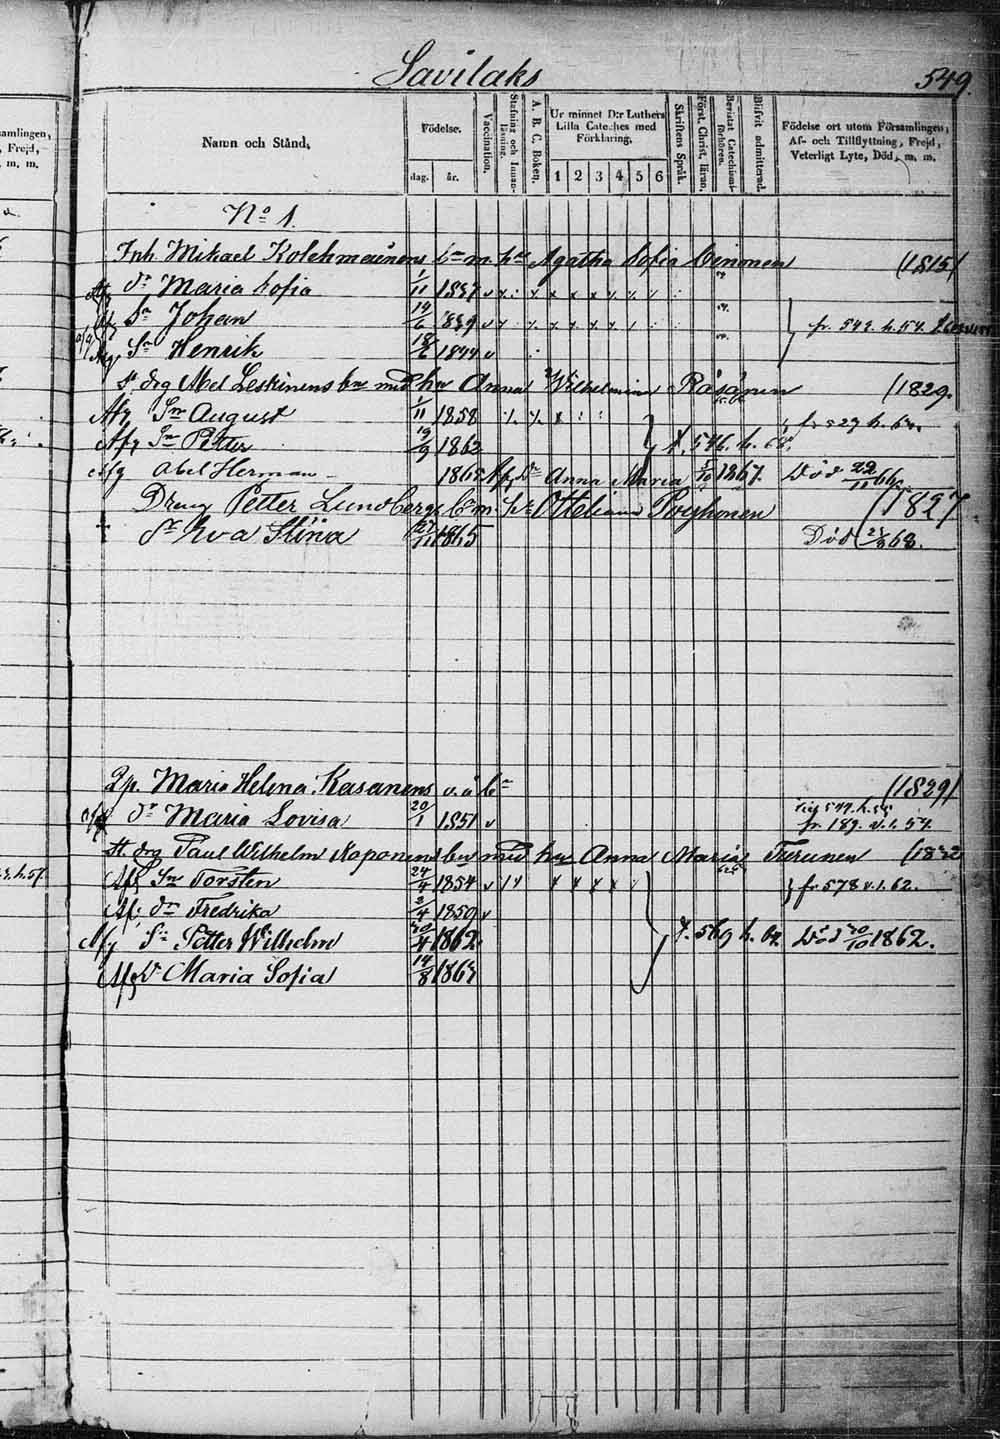 Savilaks 549.
Namn och Stånd,
Födelse.
dag. år.
Vaccination.
Stafning och Innanläsning.
A. B. C. Boken.
Ur minnet D:r Luthers Lilla Cateches med Förklaring,
1 2 3 4 5 6
Skriftens Språk.
Först. Christ. läran.
Bevistat Catechismiförhören.
Blifvit admitterad.
Födelse ort utom Församlingen,
Af- och Tillflyttning, Frejd,
Veterligt Lyte, Död, m. m.
amlingen,
Frejd,
m. m.
No 1.
Inh. Mikael Kolehmainens bn m. hu Agatha Sofia (1815)
Afg dr Maria Sofia 1/11 1837
Afg Sn Johan 14/6 1839 fr. 542. h. 54.
Afg. Sn Henrik 18/6 1844
drg Abel Leskinens bn med hu Anna Wilhelmina Räsänen (1829.
Afg Sn August 1/11 1858
Afg Sn Petter 19/9 1862 f. 546. h. 68.
Afg Abel Herman 1865 Afg Dr Anna Maria 5/10 1867. Död 22/11 66.
Dreng Petter Lundbergs bn m. hu Ottiliana Pöyhönen (1827
† dr Eva Stina 27/11 1865 Död 68.
Ip. Maria Helena Kasanens o. ä. bn (1829)
dr Maria Lovisa 20/1 1851 fr. 189. v. 1. 54.
St. drg Paul Wilhelm Kaponens bn med hu Anna Maria Turunen
Afg Sn Torsten 24/4 1854 fr 578 v. 1. 62.
Af. dr Fredrika 2/4 1859
Afg Sn Petter Wilhelm 1862 f. 569 h. Död 30/10 1862.
Afg Dr Maria Sofia 14/8 186